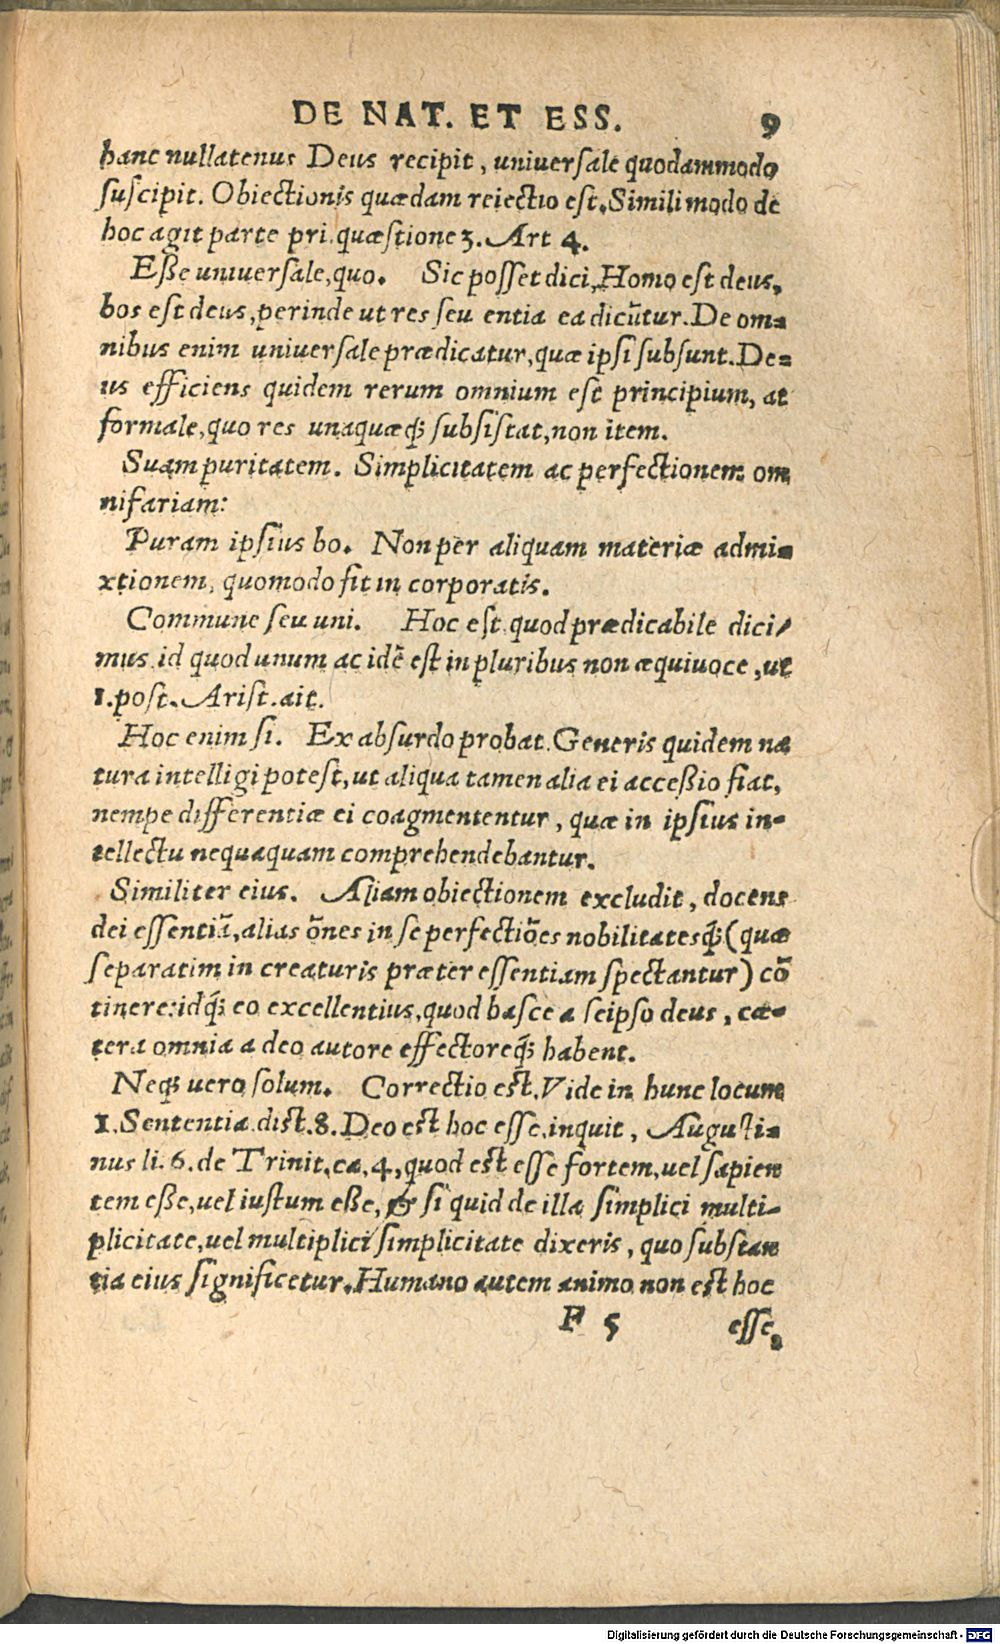 DE NAT. ET ESS. 9
hanc nullatenus Deus recipit, universale quodammodo
suscipit. Obiectionis quædam reiectio est. Simili modo de
hoc agit parte pri. quæstione 3. Art 4.
Eße universale, quo. Sic posset dici, Homo est deus,
bos est deus, perinde ut res seu entia ea dicũtur. De om-
nibus enim universale prædicatur, quæ ipsi subsunt. De-
us efficiens quidem rerum omnium est principium, at
formale, quo res unaquæq; subsistat, non item.
Suam puritatem. Simplicitatem ac perfectionem om
nifariam:
Puram ipsius bo. Non per aliquam materiæ admi-
xtionem, quomodo fit in corporatis.
Commune seu uni. Hoc est quod prædicabile dici/
mus id quod unum ac idẽ est in pluribus non æquivoce, ut
1. post. Arist. ait.
Hoc enim si. Ex absurdo probat. Generis quidem na
tura intelligi potest, ut aliqua tamen alia ei acceßio fiat,
nempe differentiæ ei coagmententur, quæ in ipsius in-
tellectu nequaquam comprehendebantur.
Similiter eius. Aliam obiectionem excludit, docens
dei essentiã, alias õnes in se perfectiões nobilitatesq; (quæ
separatim in creaturis præter essentiam spectantur) cõ
tinere: idq; eo excellentius, quod hasce a seipso deus, cæ-
tera omnia a deo autore effectoreq; habent.
Neq; vero solum. Correctio est. Vide in hunc locum
1. Sententia dist. 8. Deo est hoc esse, inquit, Augusti-
nus li. 6. de Trinit. ca. 4, quod est esse fortem, vel sapien
tem eße, vel iustum eße, & si quid de illa simplici multi-
plicitate, vel multiplici simplicitate dixeris, quo substan
tia eius significetur. Humano autem animo non est hoc
F 5 esse,
Digitalisierung gefördert durch die Deutsche Forschungsgemeinschaft - DFG